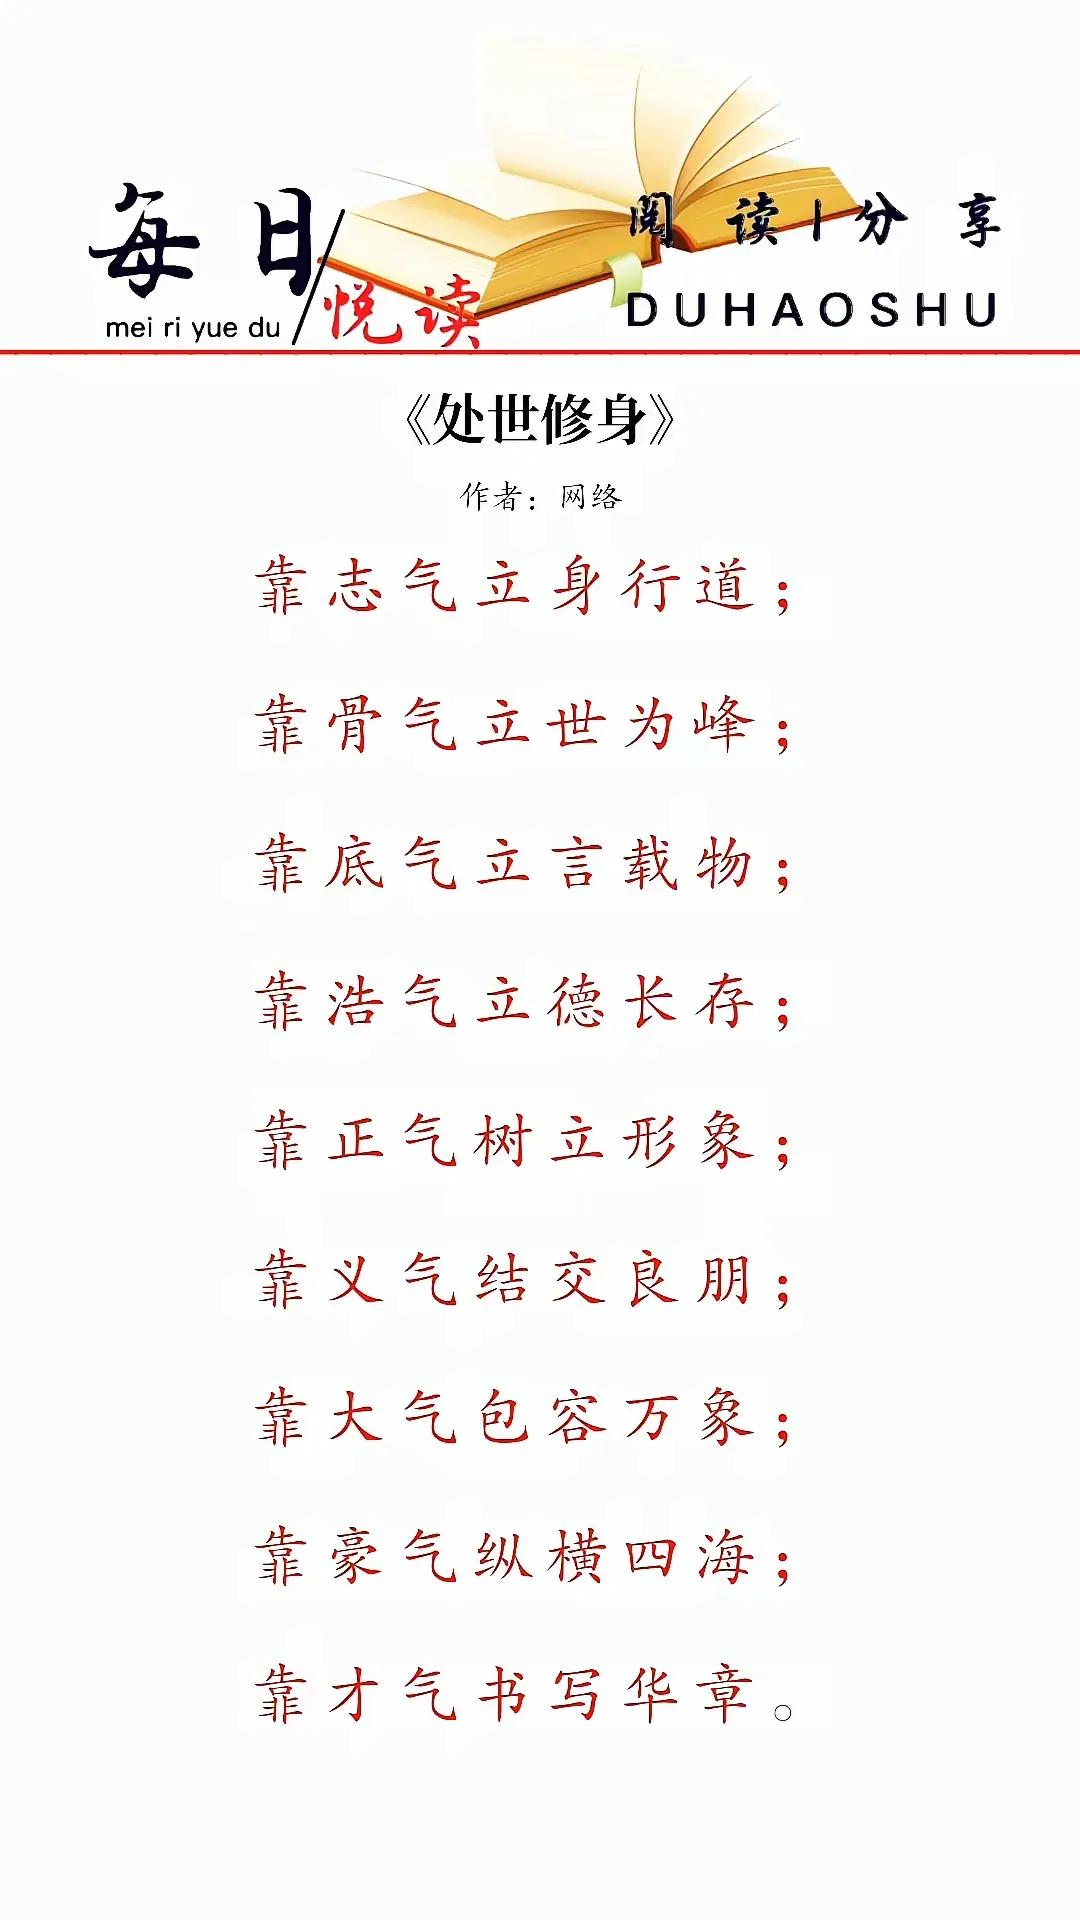 每日
mei ri yue du
悦读
阅读|分享
DUHAOSHU
《处世修身》
作者：网络
靠志气立身行道；
靠骨气立世为峰；
靠底气立言载物；
靠浩气立德长存；
靠正气树立形象；
靠义气结交良朋；
靠大气包容万象；
靠豪气纵横四海；
靠才气书写华章。